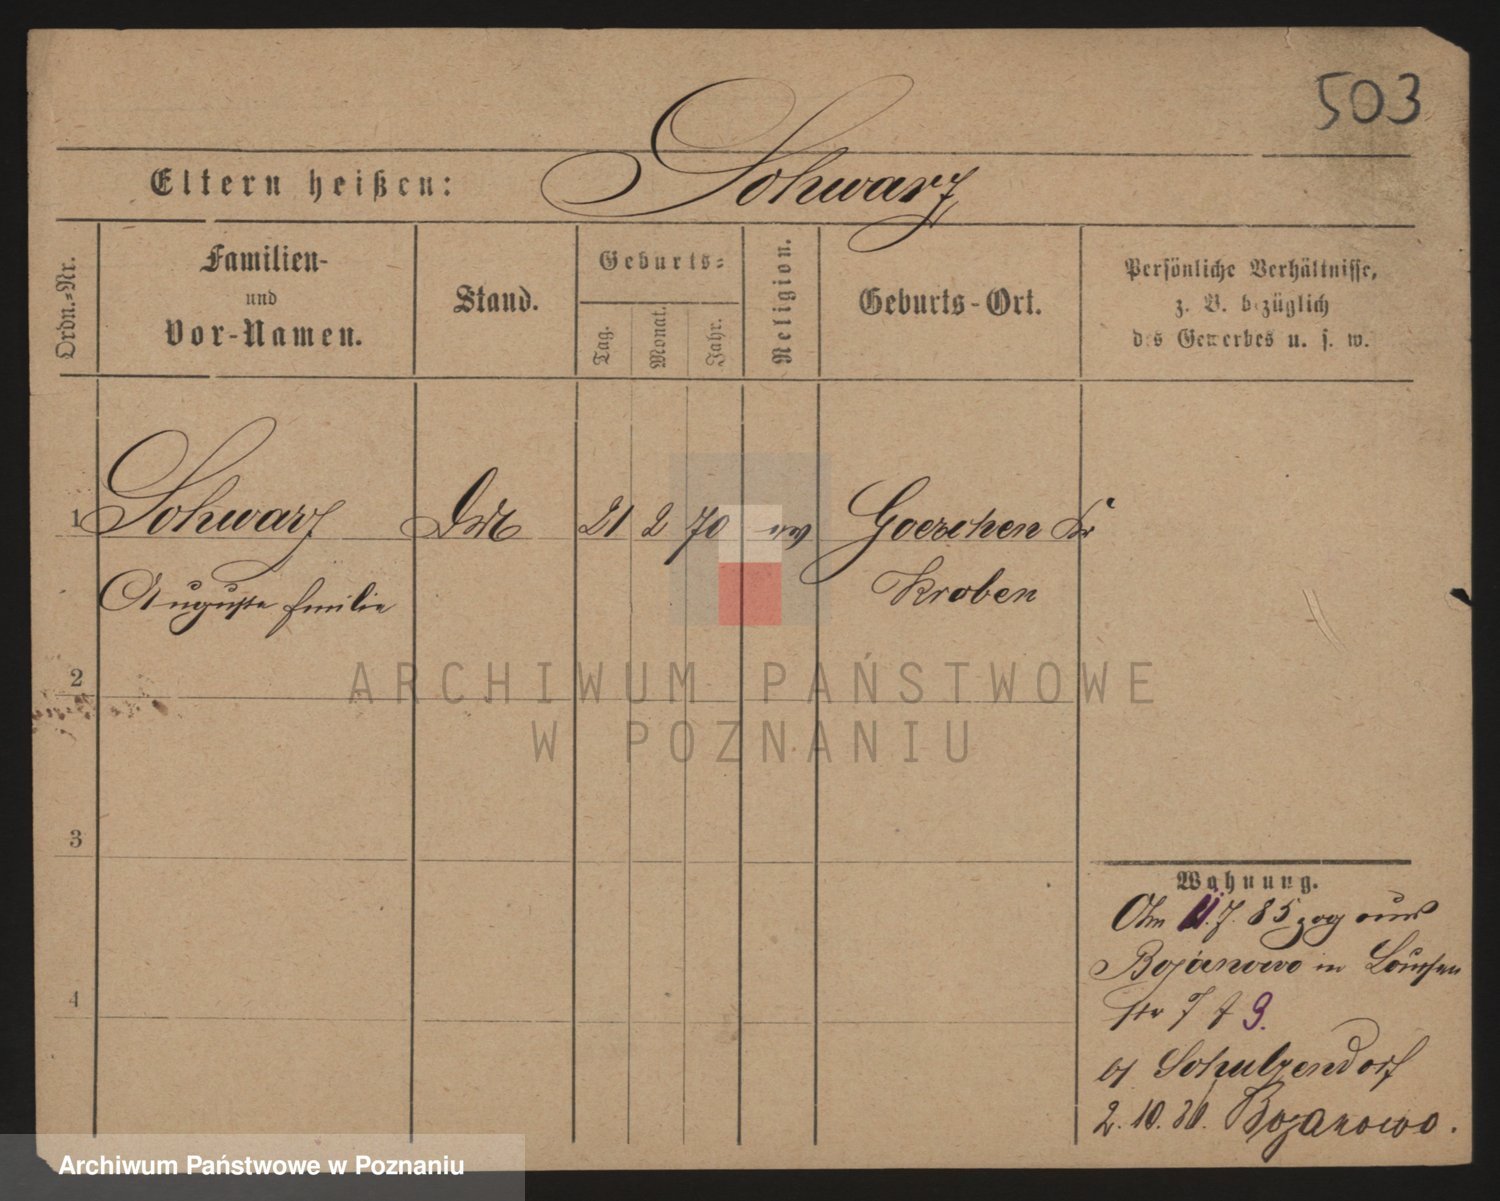 503
Eltern heißen: Schwarz
Ordn.=Nr.
Familien-
und
Vor-Namen.
Stand.
Geburts=
Tag.
Monat.
Jahr.
Religion.
Geburts-Ort.
Persönliche Verhältnisse,
z. B. bezüglich
des Gewerbes u. s. w.
1 Schwarz 21 2 70 ev Goerchen Kr
Auguste Emilie Kroben
2
ARCHIWUM PAŃSTWOWE
W POZNANIU
3
4
Wohnung.
Am 11.7.85 zog aus
Bojanowo in
str 7 9.
Schulzendorf
2.10. Bojanowo.
Archiwum Państwowe w Poznaniu